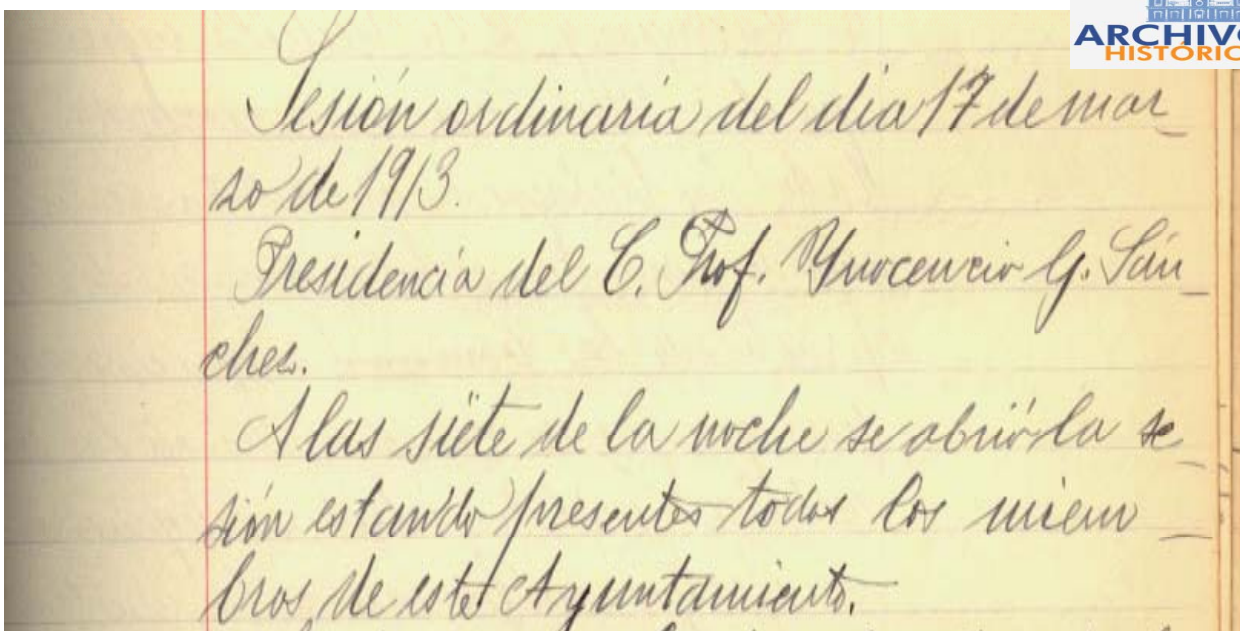 ARCHIVO
HISTÓRICO
Sesión ordinaria del dia 17 de mar_
zo de 1913.
Presidencia del C. Prof. Ynocencio G. Sán_
ches.
A las siete de la noche se abrió la se_
sión estando presentes todos los miem_
bros de este Ayuntamiento.